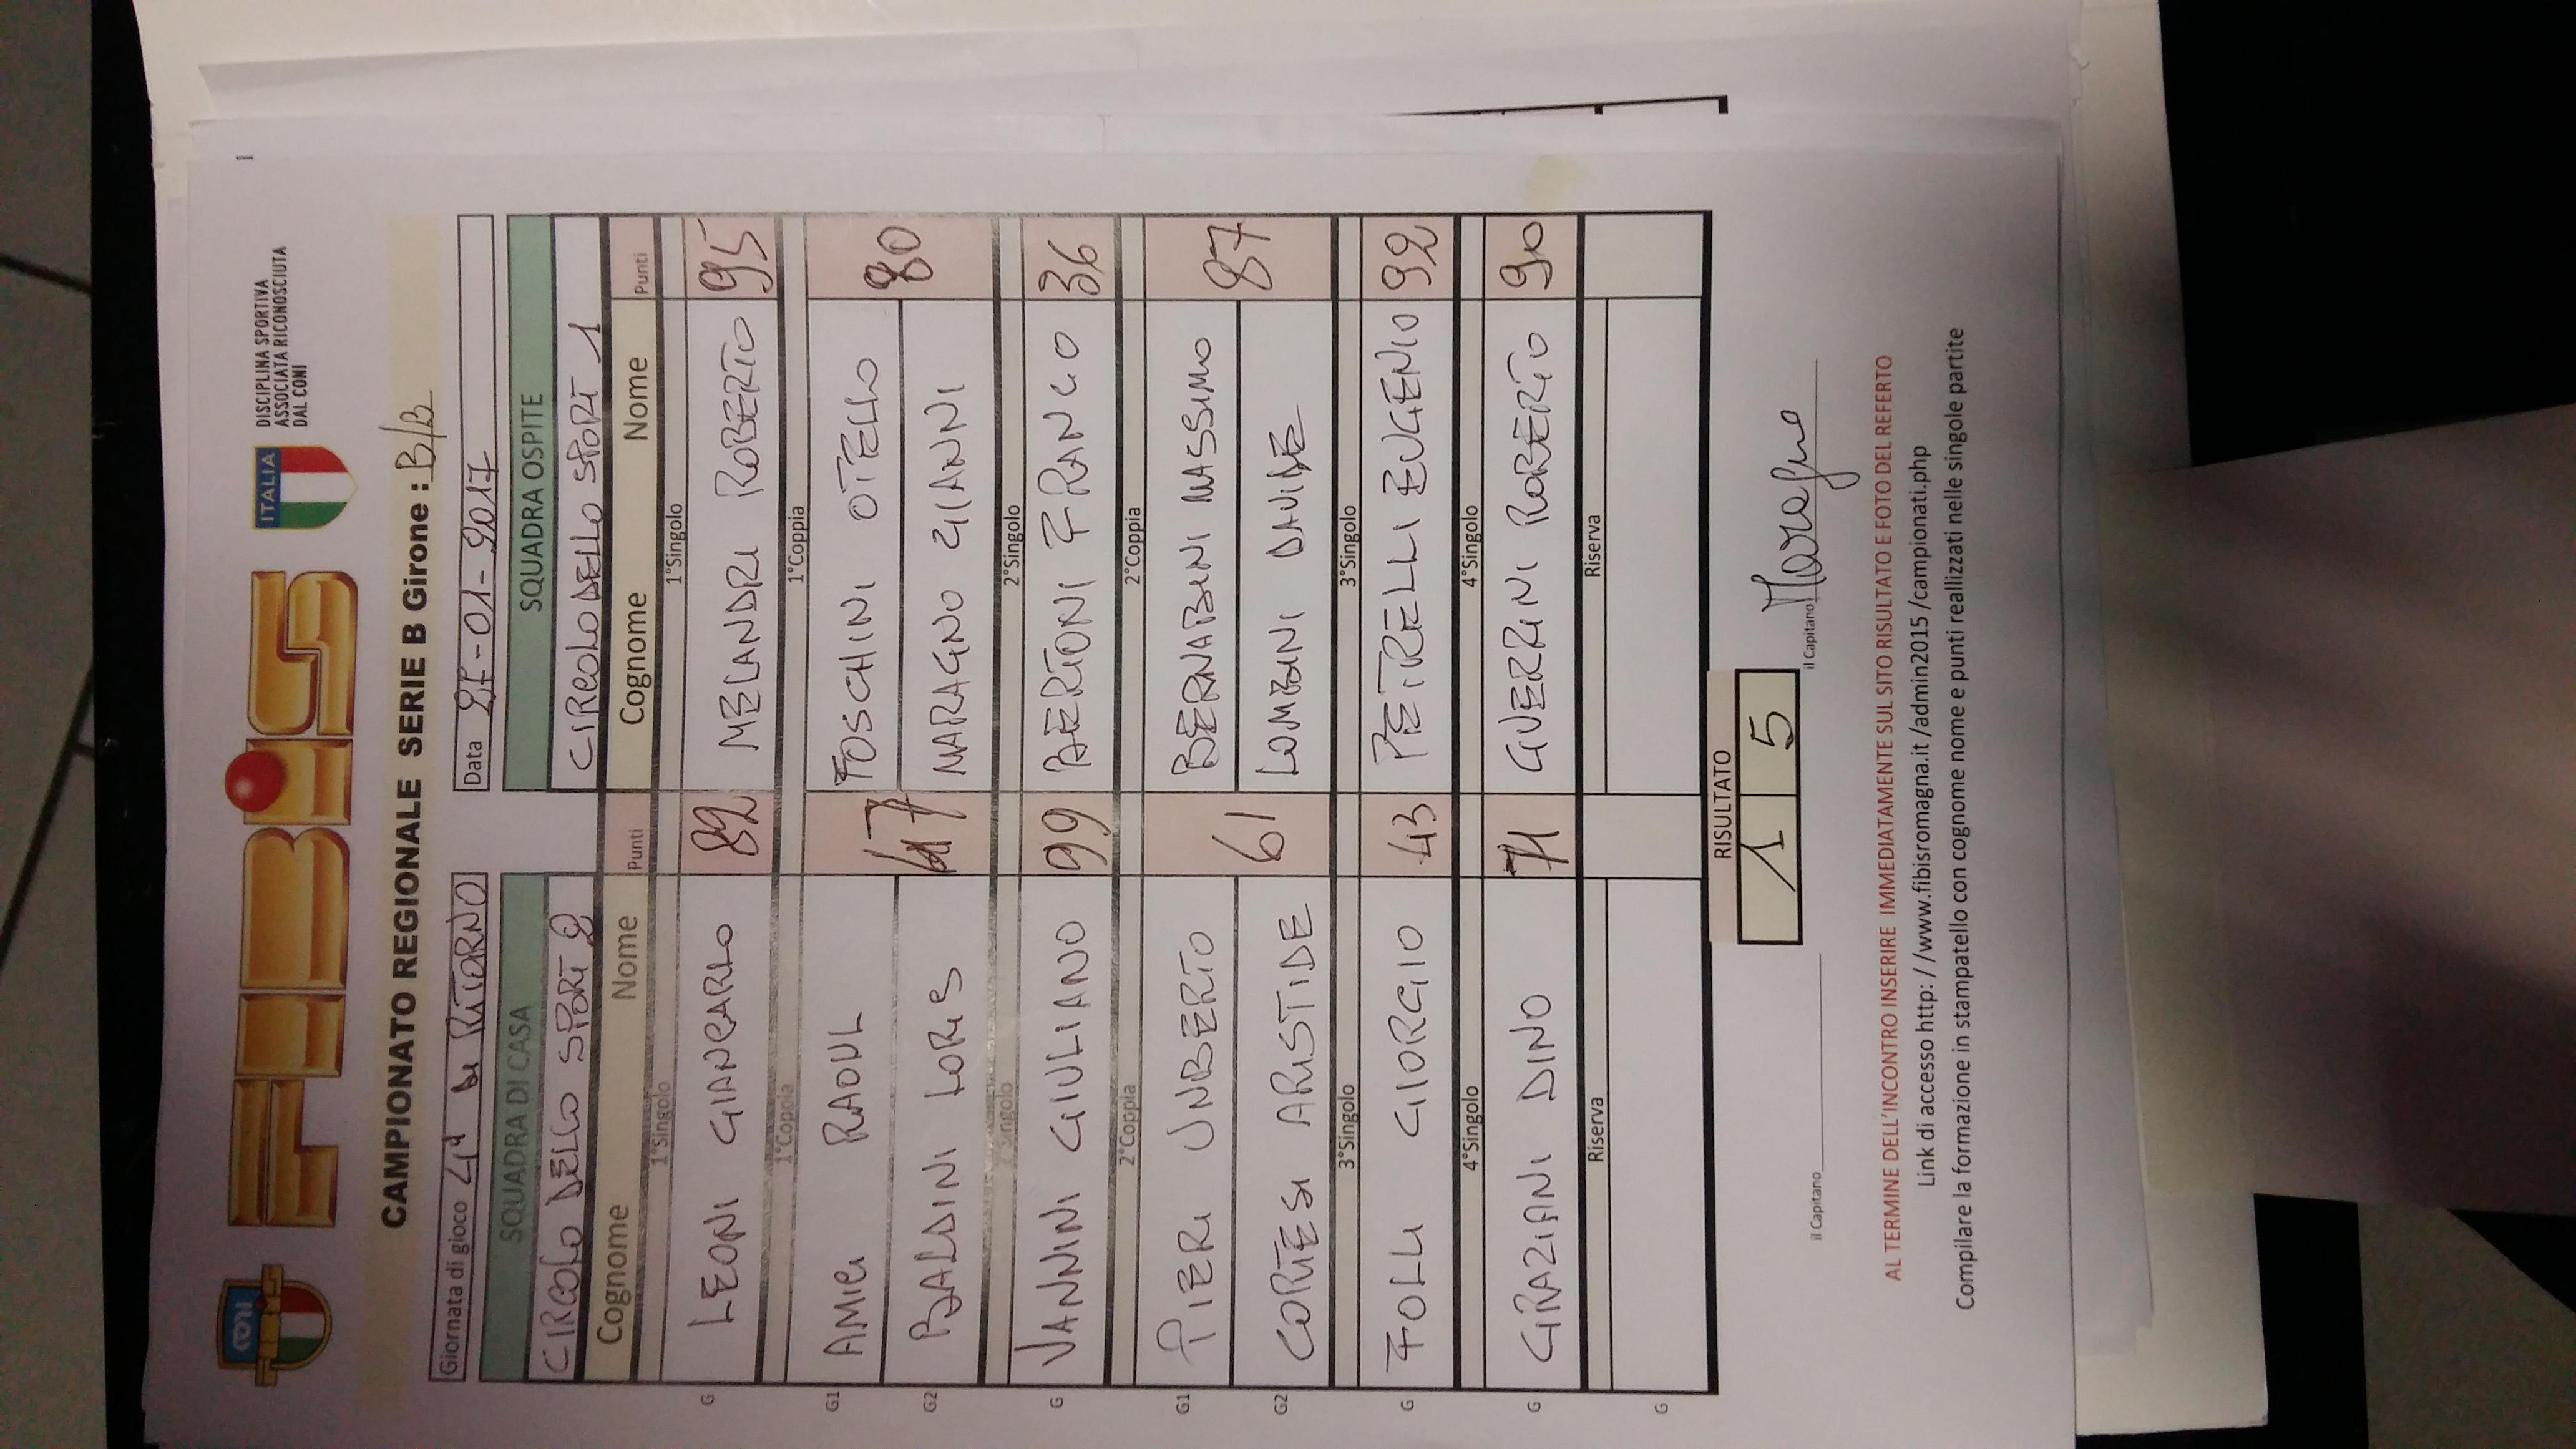 CONI
FIBIS
FIBiS
ITALIA
DISCIPLINA SPORTIVA
ASSOCIATA RICONOSCIUTA
DAL CONI
1
CAMPIONATO REGIONALE SERIE B Girone : B/B
Giornata di gioco 4ª di RITORNO
Data -01-2017
SQUADRA DI CASA SQUADRA OSPITE
CIRCOLO DELLO SPORT 2 CIRCOLO DELLO SPORT 1
Cognome Nome Punti Cognome Nome Punti
1°Singolo 1°Singolo
G LEONI GIANCARLO 82 MELANDRI ROBERTO 95
1°Coppia 1°Coppia
G1 AMICI RAOUL FOSCHINI OTELLO
47 80
G2 BALDINI LORIS MARAGNO GIANNI
2°Singolo 2°Singolo
G VANNINI GIULIANO 99 BERTONI FRANCO 36
2°Coppia 2°Coppia
G1 PIERI UNBERTO BERNABINI MASSIMO
61 87
G2 CORTESI ARISTIDE LOMBINI DAVIDE
3°Singolo 3°Singolo
G FOLLI GIORGIO 43 PETRELLI EUGENIO 92
4°Singolo 4°Singolo
G GRAZIANI DINO 71 GUERRINI ROBERTO 90
Riserva Riserva
G
RISULTATO
1 5
il Capitano il Capitano Maragno
AL TERMINE DELL'INCONTRO INSERIRE IMMEDIATAMENTE SUL SITO RISULTATO E FOTO DEL REFERTO
Link di accesso http: / /www.fibisromagna.it /admin2015 /campionati.php
Compilare la formazione in stampatello con cognome nome e punti reallizzati nelle singole partite